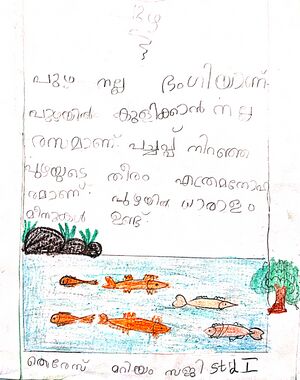 പുഴ
പുഴ നല്ല ഭംഗിയാണ്.
പുഴയിൽ കുളിക്കാൻ നല്ല
രസമാണ്. പച്ചപ്പ് നിറഞ്ഞ
പുഴയുടെ തീരം എത്രമനോഹ
രമാണ്. പുഴയിൽ ധാരാളം
മീനുകൾ ഉണ്ട്.
തെരേസ് മറിയം സജി std I